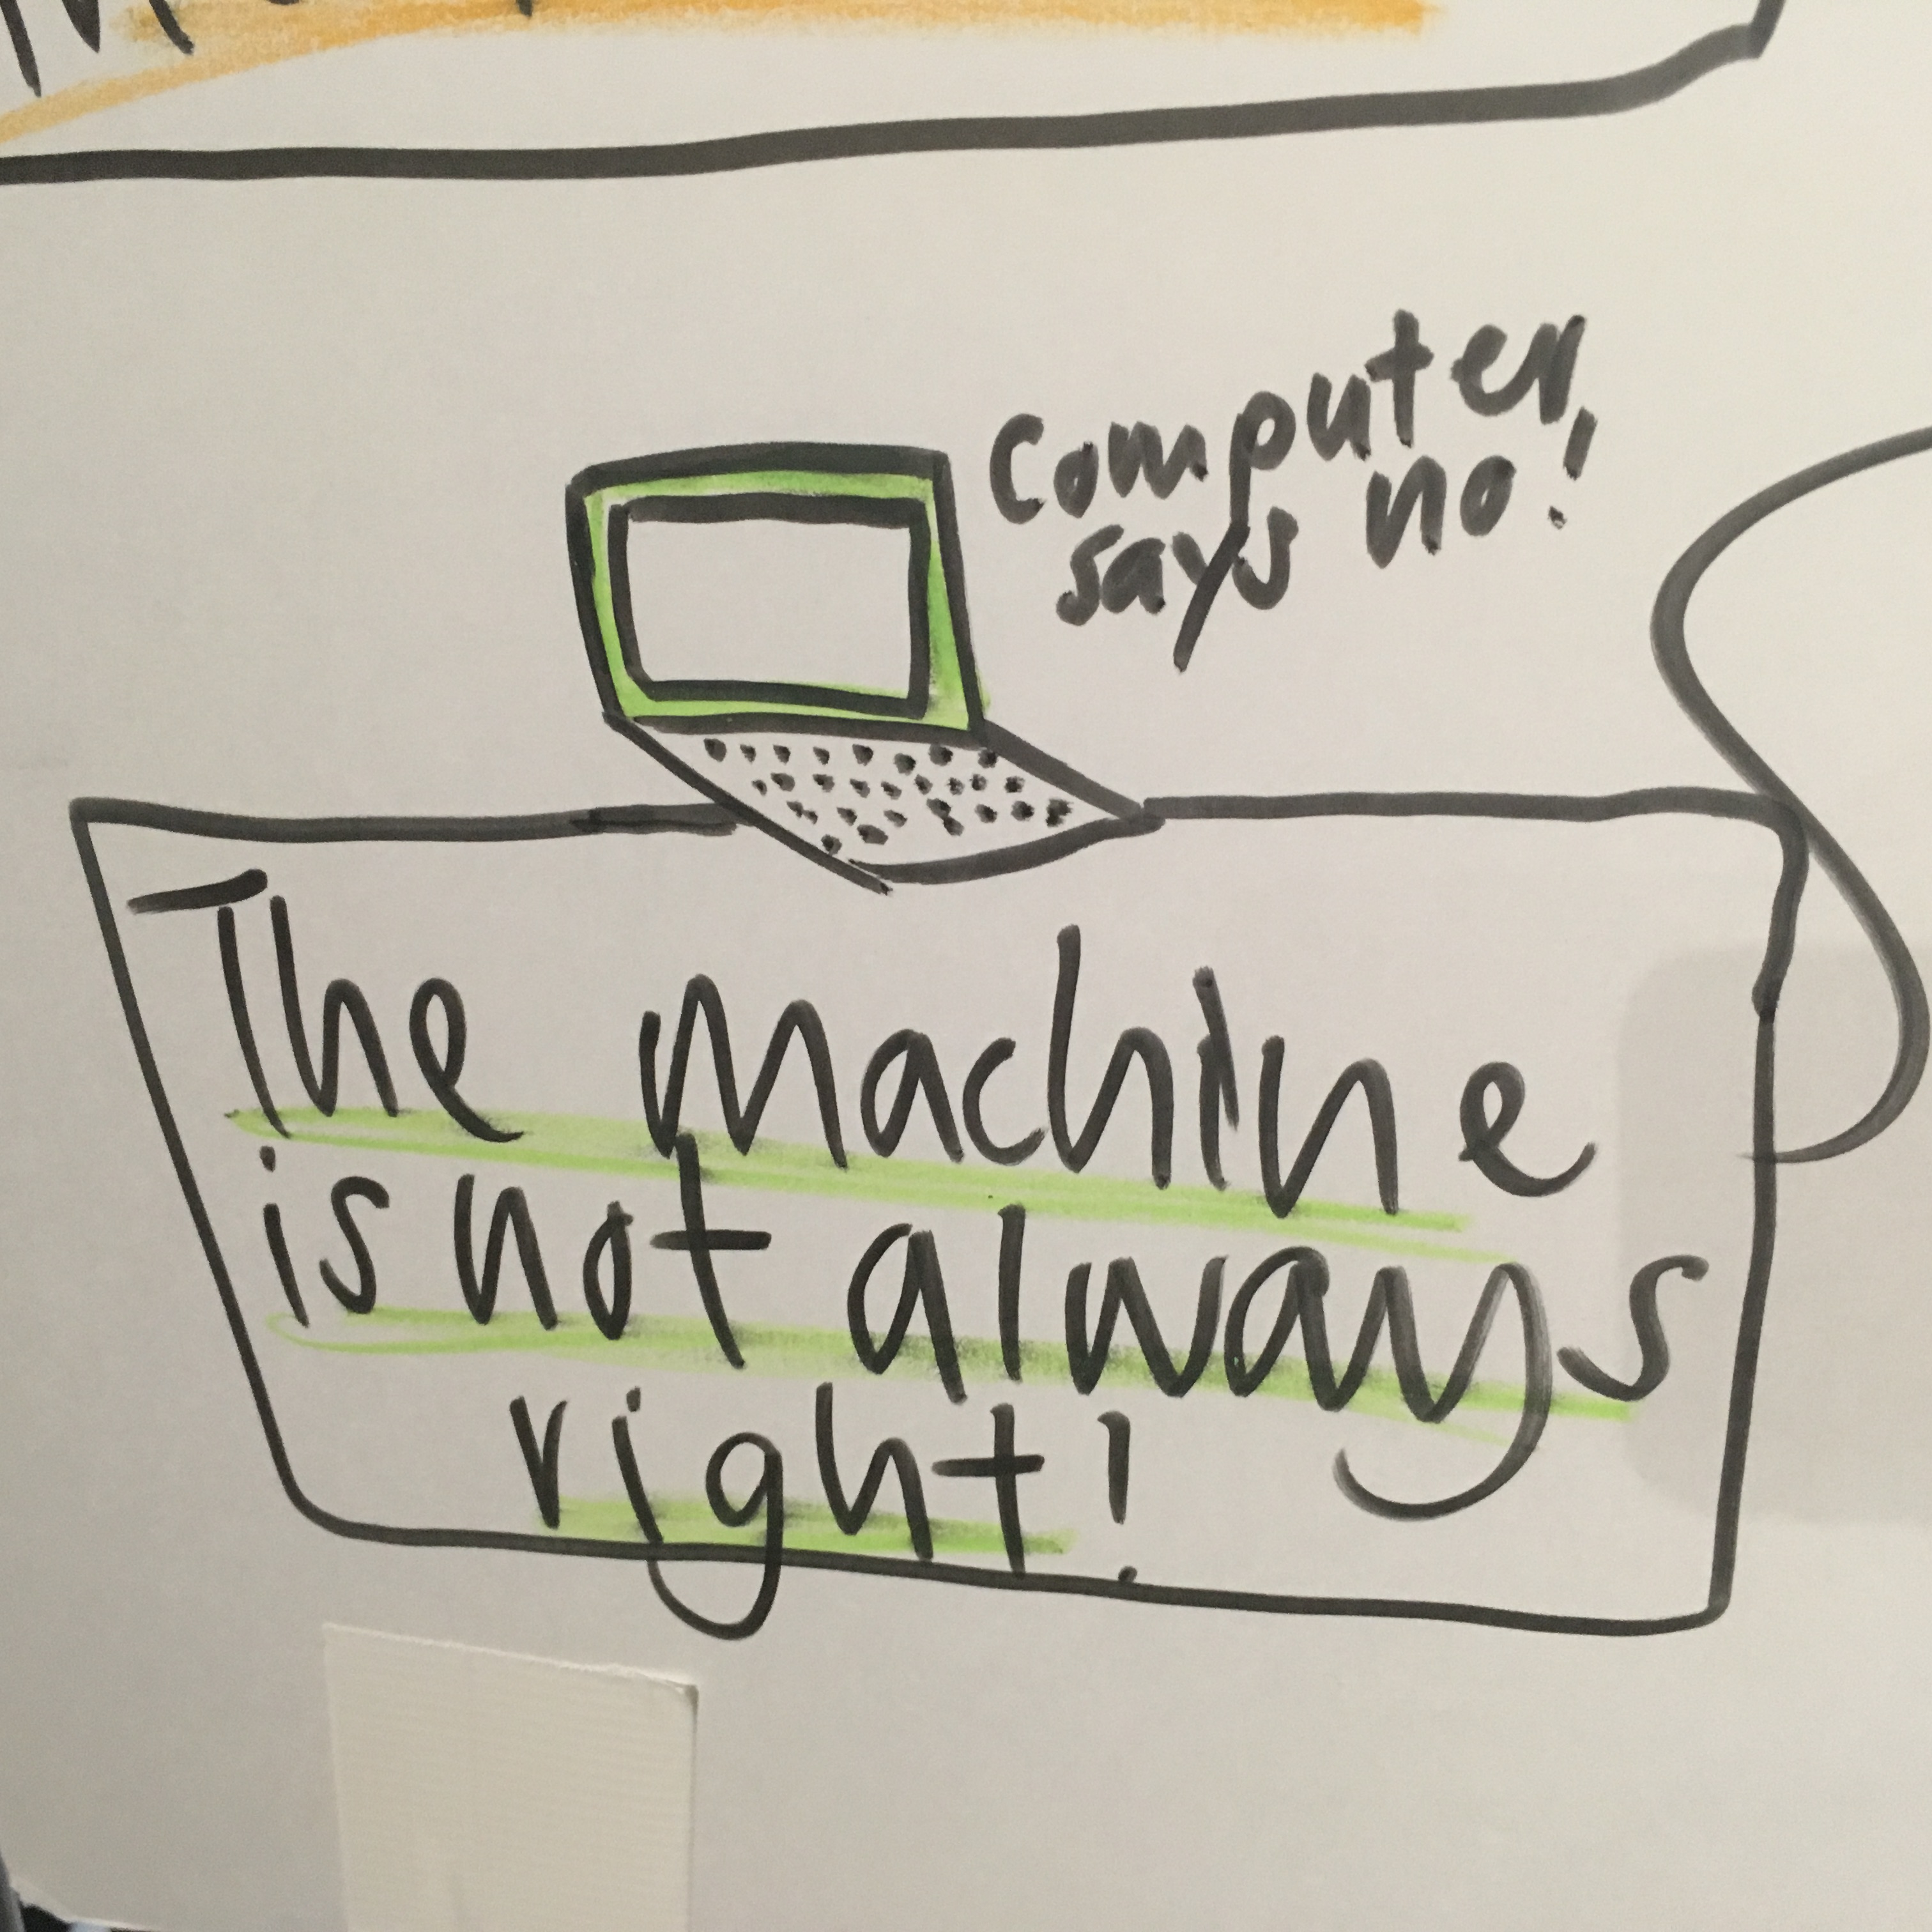 Computer
says no!
The machine
is not always
right!